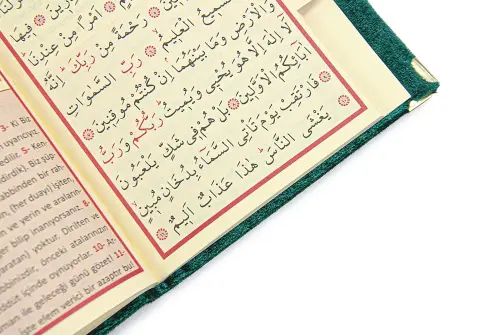 اَمْرًا مِنْ عِنْدِنَا
رَحْمَةً مِنْ رَبِّكَ اِنَّهُ
السَّمِيعُ الْعَلِيمُ رَبِّ السَّمٰوَاتِ
وَالْاَرْضِ وَمَا بَيْنَهُمَا اِنْ كُنْتُمْ مُوقِنِينَ
لَا اِلٰهَ اِلَّا هُوَ يُحْيِي وَيُمِيتُ رَبُّكُمْ وَرَبُّ
اٰبَائِكُمُ الْاَوَّلِينَ بَلْ هُمْ فِي شَكٍّ يَلْعَبُونَ
فَارْتَقِبْ يَوْمَ تَأْتِي السَّمَاءُ بِدُخَانٍ مُبِينٍ
يَغْشَى النَّاسَ هٰذَا عَذَابٌ اَلِيمٌ
3- Ki Biz
uyarıcıyız.
edilir. 5- Ken-
dirdik). Biz şüp-
abbinden bir rah-
n, (her duayı) işiten,
n ve yerin ve araların-
er bilip inanıyorsanız. 8-
aratan) yoktur. Dirilten ve
bbinizdir, önceki atalarınızın
ddüt içinde oynuyorlar. 10- Ar-
man ile geleceği günü gözet! 11-
işte elem verici bir azaptır bu!